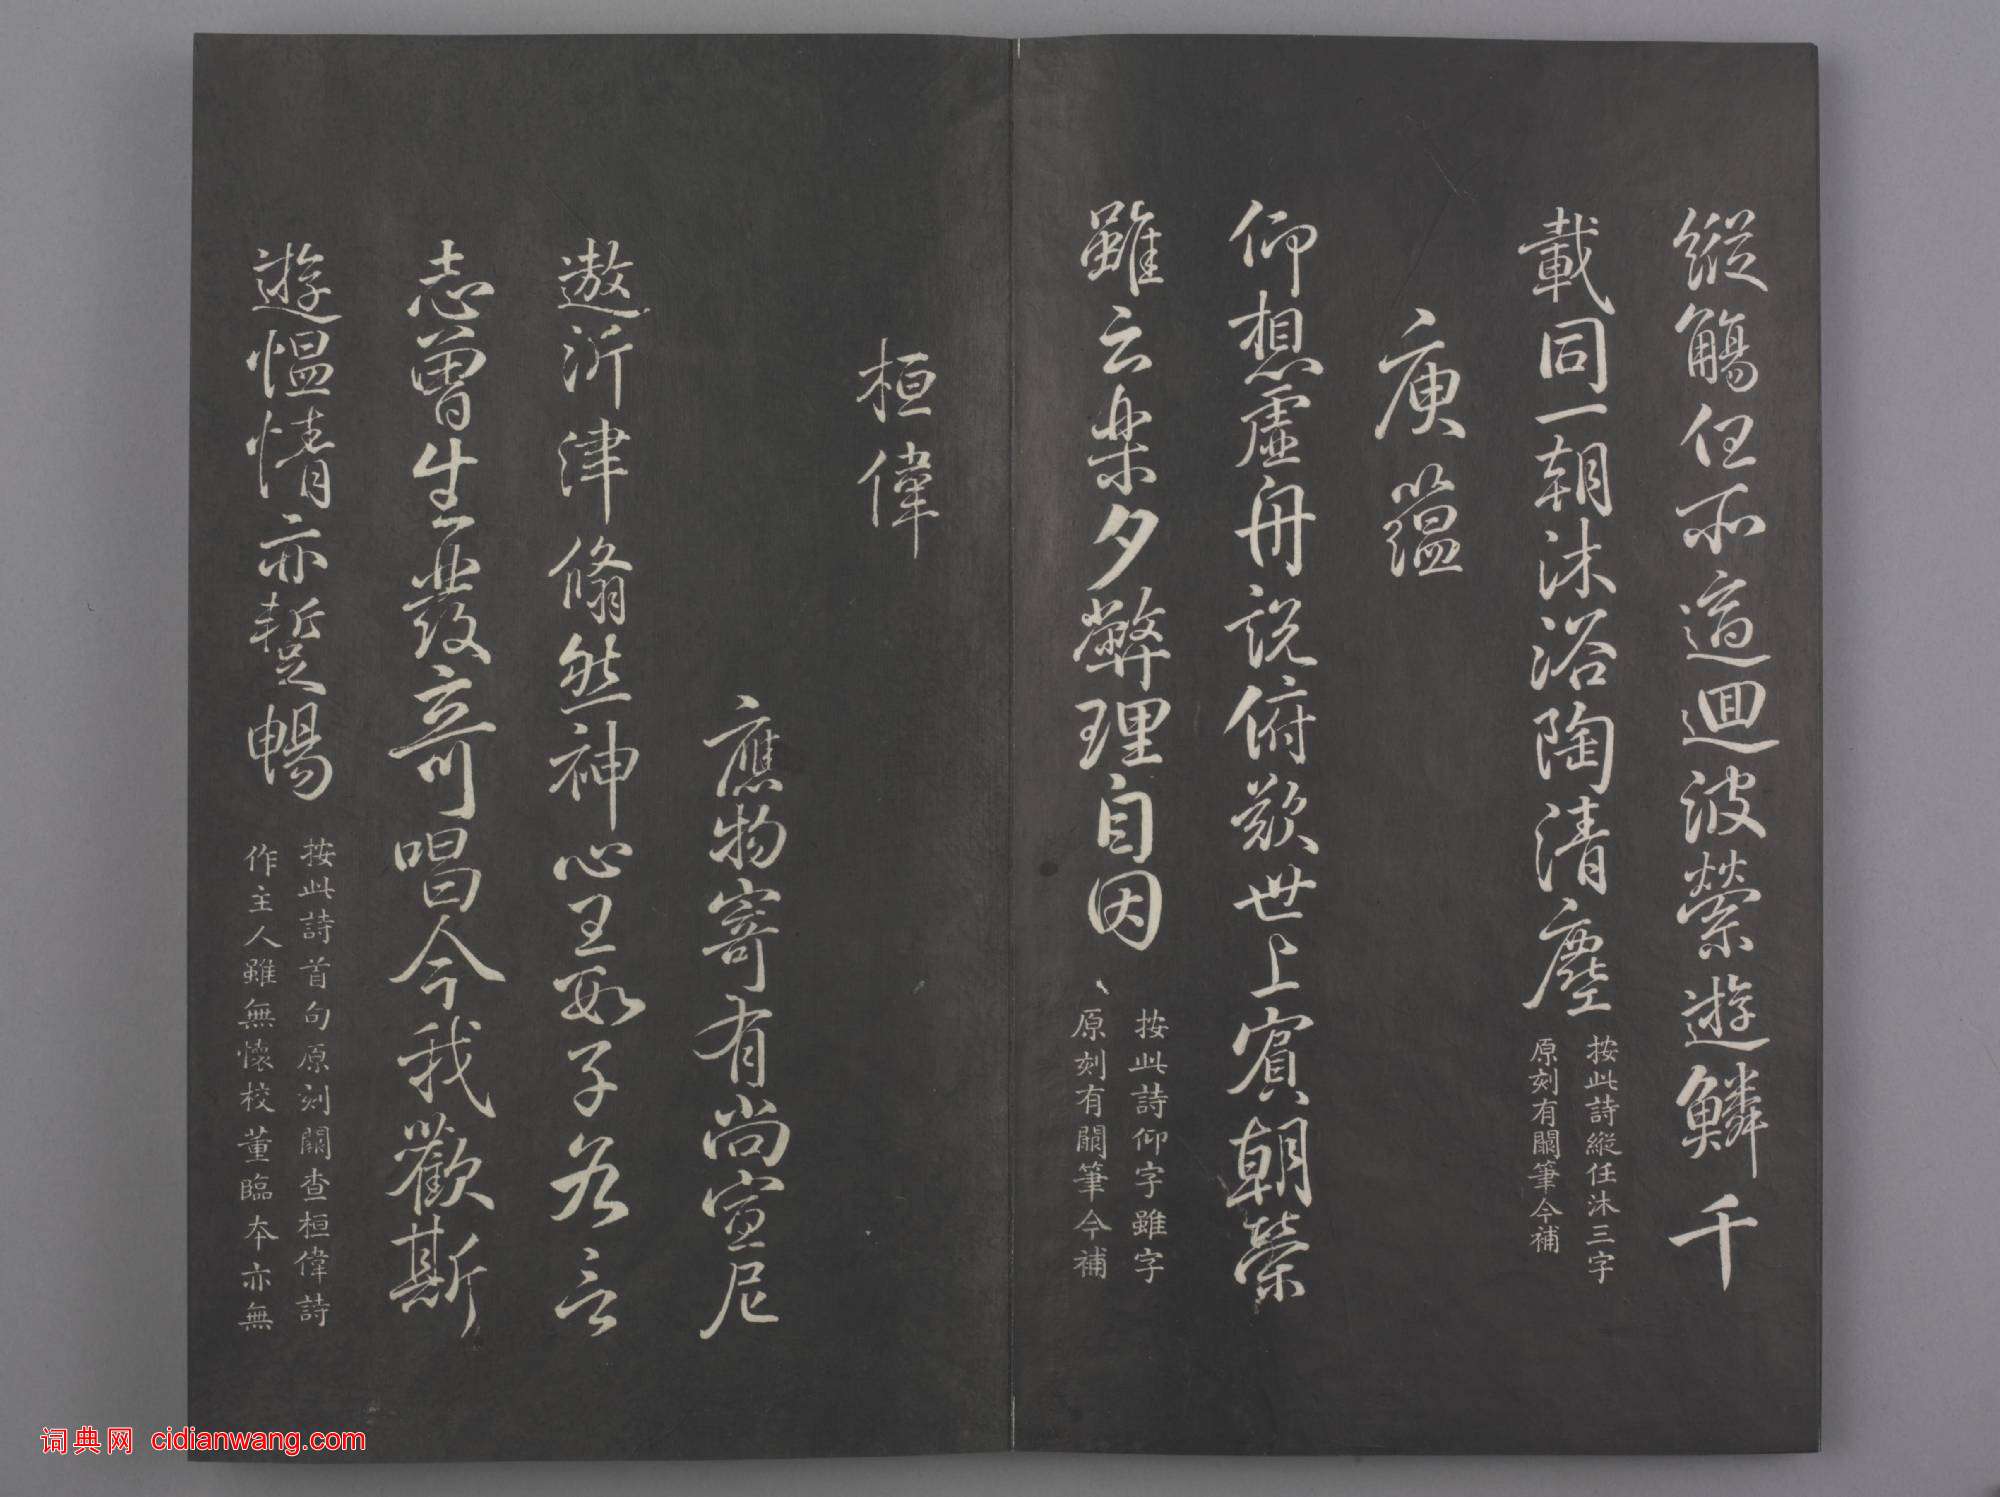 縱觴任所適迴波縈遊鱗千
載同一朝沐浴陶清塵
按此詩縱任沐三字
原刻有闕筆今補
庾蘊
仰想虛舟說俯歎世上賓朝榮
雖云樂夕弊理自因
按此詩仰字雖字
原刻有闕筆今補
桓偉
應物寄有尚宣尼
遨沂津翛然神心王數子各言
志曾生發竒唱今我歡斯
遊慍情亦暫暢
按此詩首句原刻闕查桓偉詩
作主人雖無懷校董臨本亦無
词典网 cidianwang.com